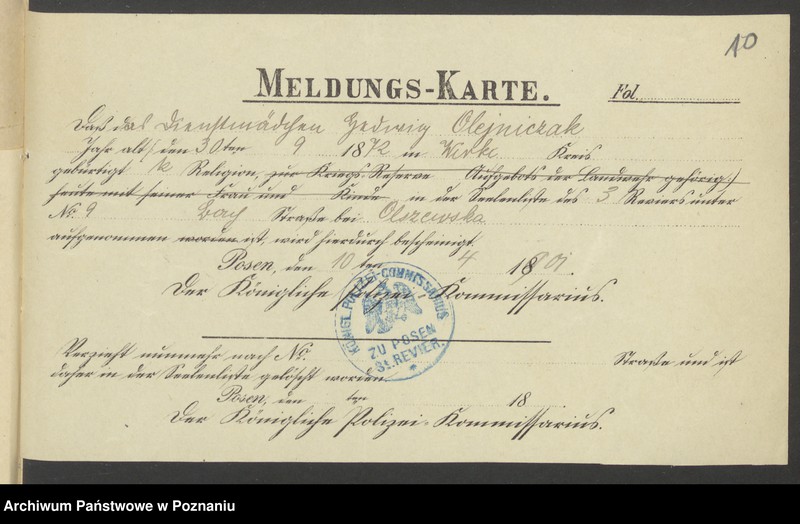 10
MELDUNGS-KARTE. Fol.
Daß das Dienstmädchen Hedwig Olejniczak
Jahr alt, den 30ten 9 1872 in Kreis
gebürtigt k Religion, zur Kriegs-Reserve Aufgebots der Landwehr gehörig,
heute mit seiner Frau und Kinde in der Seelenliste des 3 Reviers unter
No. 9 Straße bei Olszewska
aufgenommen worden ist, wird hierdurch bescheinigt.
Posen, den 10 ten 4 1901
Der Königliche Polizei-Kommissarius.
KÖNIGL. POLIZEI-COMMISSARIUS
ZU POSEN
REVIER.
Verzieht nunmehr nach No. Straße und ist
daher in der Seelenliste gelöscht worden.
Posen, den ten 18
Der Königliche Polizei-Kommissarius.
Archiwum Państwowe w Poznaniu